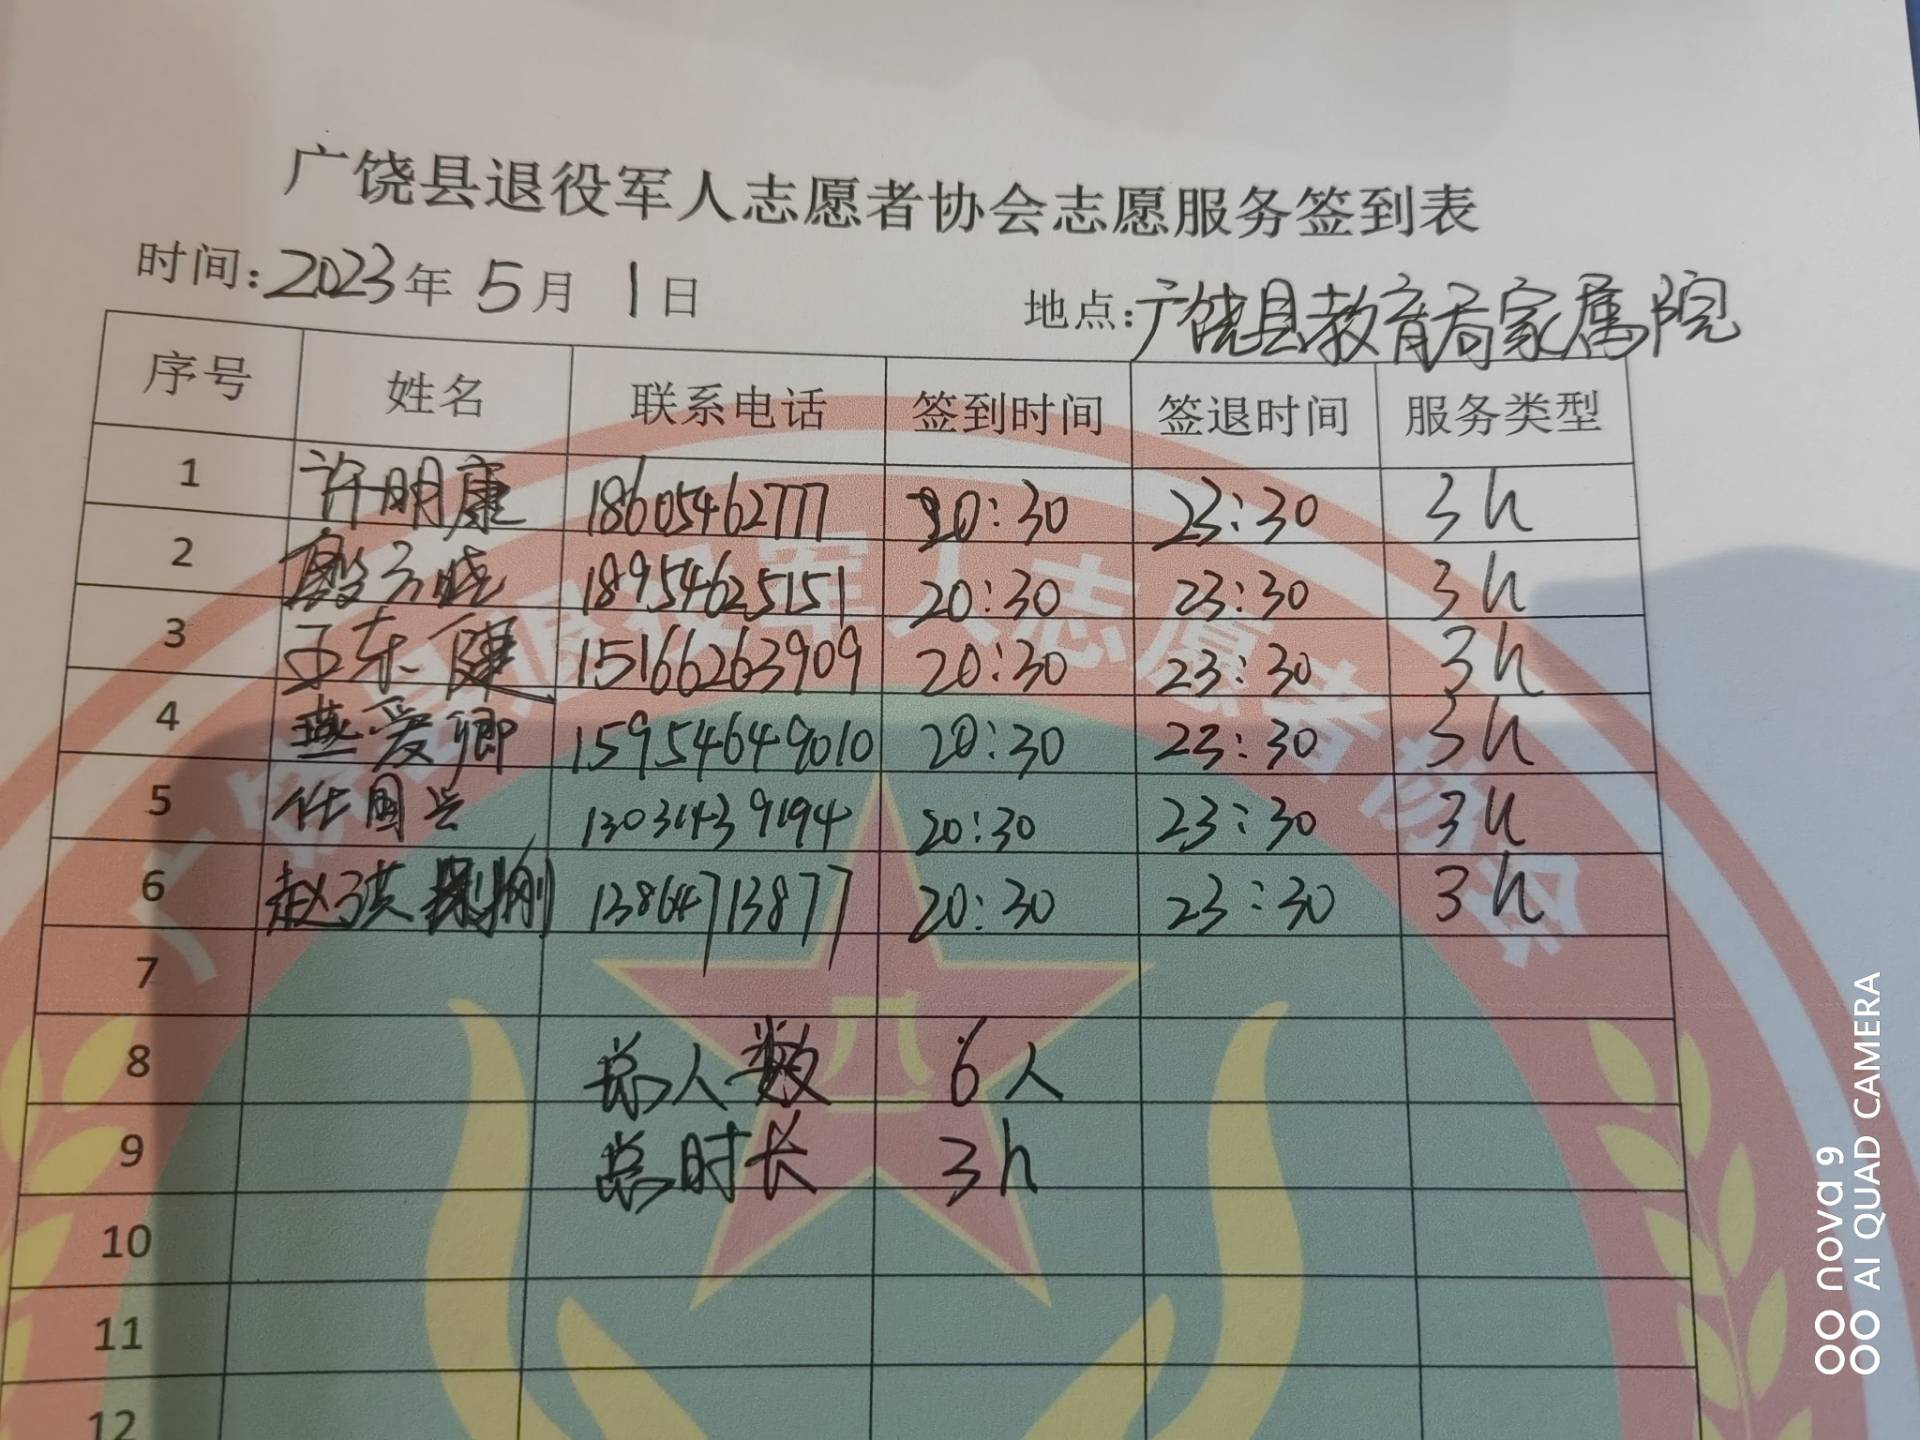 广饶县退役军人志愿者协会志愿服务签到表
时间:2023年5月1日 地点:广饶县教育局家属院
序号 姓名 联系电话 签到时间 签退时间 服务类型
1 许明康 18605462777 20:30 23:30 3h
2 18954625151 20:30 23:30 3h
3 王东健 15166263909 20:30 23:30 3h
4 燕爱卿 20:30 23:30 3h
5 任国兴 20:30 23:30 3h
6 赵洪刚 13864713877 20:30 23:30 3h
7
8 总人数 6人
9 总时长 3h
10
11
12
广饶县退役军人志愿者协会
八一
nova 9
AI QUAD CAMERA